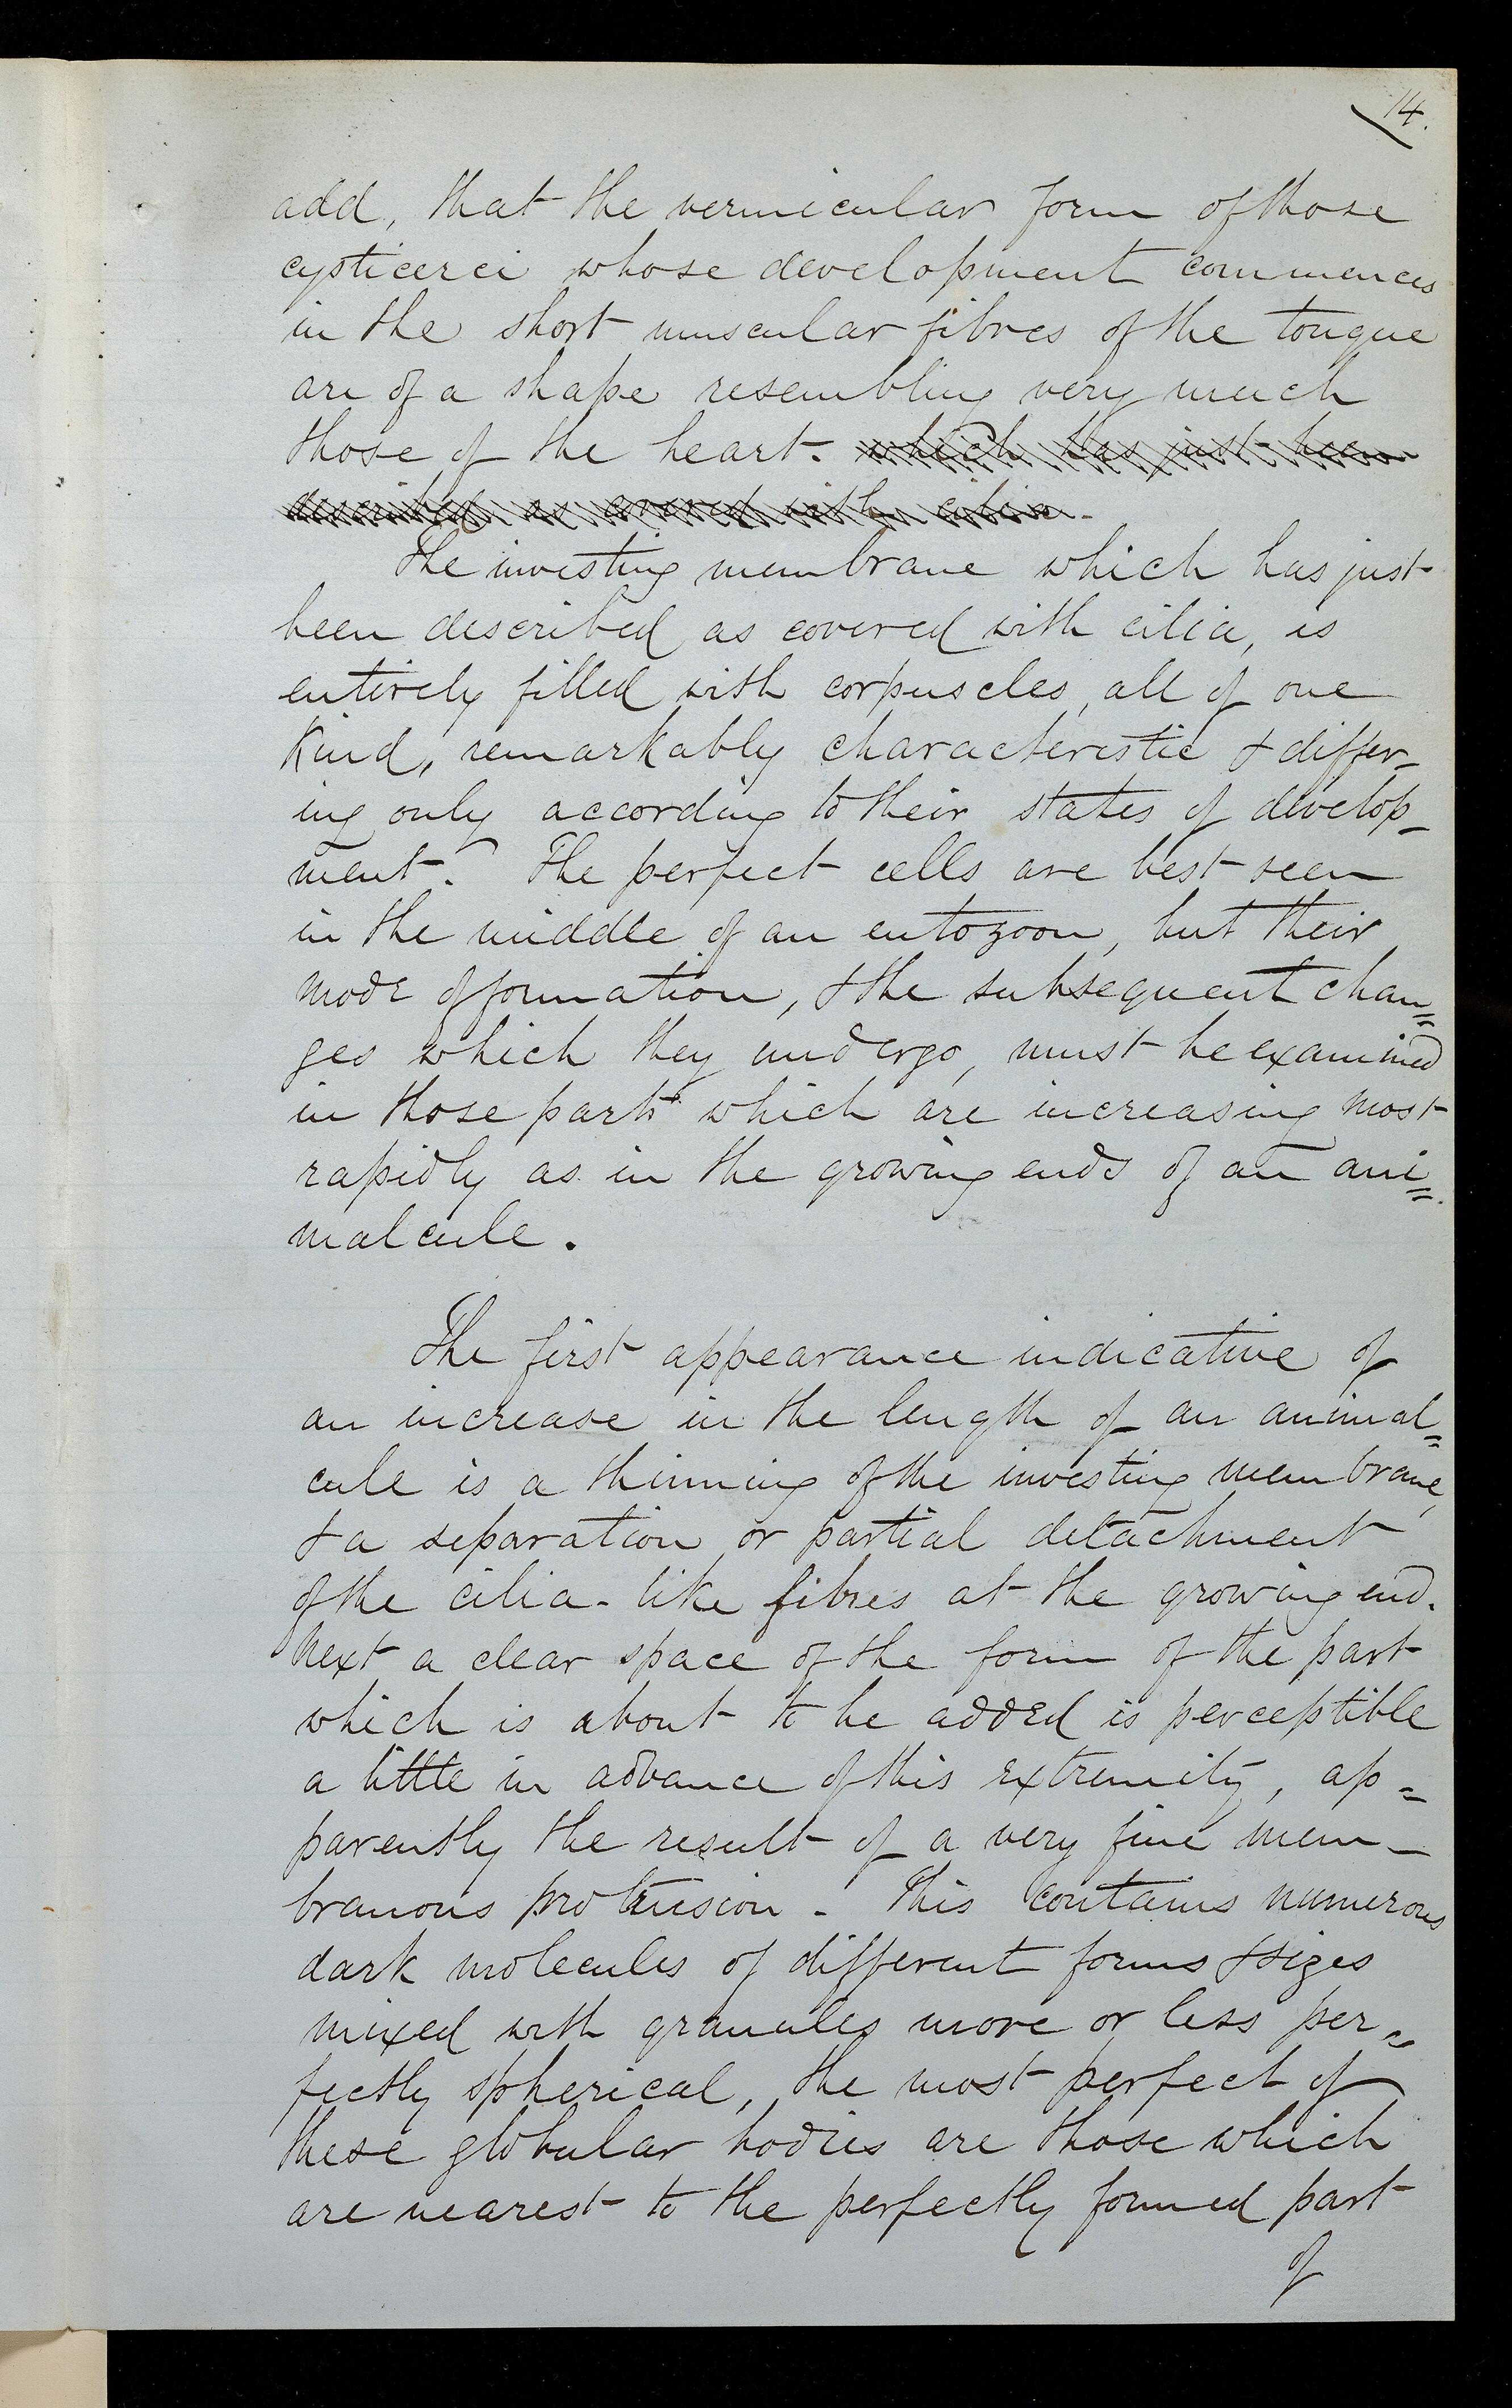 14.
add, that the vermicular form of those
cysticerci whose development commences
in the short muscular fibres of the tongue
are of a shape resembling very much
those of the heart. which has just been
described as covered with cilia.
The investing membrane which has just
been described as covered with cilia, is
entirely filled with corpuscles, all of one
kind, remarkably characteristic & differ-
ing only according to their states of develop-
ment. The perfect cells are best seen
in the middle of an entozoon, but their
mode of formation, & the subsequent chan=
ges which they undergo, must be examined
in those parts which are increasing most
rapidly as in the growing ends of an ani=
malcule.
The first appearance indicative of
an increase in the length of an animal=
cule is a thinning of the investing membrane,
& a separation or partial detachment
of the cilia-like fibres at the growing end.
Next a clear space of the form of the part
which is about to be added is perceptible
a little in advance of this extremity, ap=
parently the result of a very fine mem-
branous protrusion. This contains numerous
dark molecules of different forms & sizes
mixed with granules more or less per=
fectly spherical, the most perfect of
these globular bodies are those which
are nearest to the perfectly formed part
of